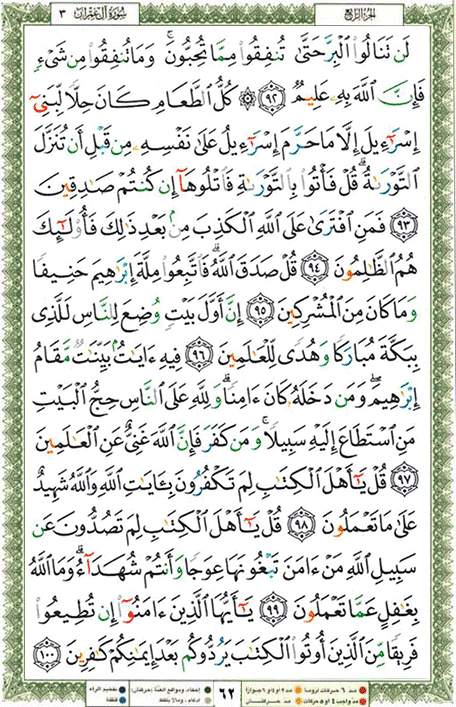 سُورَةُ آلِ عِمْرَانَ ٣ الجزء الرابع
لَن تَنَالُوا۟ ٱلْبِرَّ حَتَّىٰ تُنفِقُوا۟ مِمَّا تُحِبُّونَ ۚ وَمَا تُنفِقُوا۟ مِن شَىْءٍ
فَإِنَّ ٱللَّهَ بِهِۦ عَلِيمٌ ٩٢ ۞ كُلُّ ٱلطَّعَامِ كَانَ حِلًّا لِّبَنِىٓ
إِسْرَٰٓءِيلَ إِلَّا مَا حَرَّمَ إِسْرَٰٓءِيلُ عَلَىٰ نَفْسِهِۦ مِن قَبْلِ أَن تُنَزَّلَ
ٱلتَّوْرَىٰةُ ۗ قُلْ فَأْتُوا۟ بِٱلتَّوْرَىٰةِ فَٱتْلُوهَآ إِن كُنتُمْ صَـٰدِقِينَ
٩٣ فَمَنِ ٱفْتَرَىٰ عَلَى ٱللَّهِ ٱلْكَذِبَ مِنۢ بَعْدِ ذَٰلِكَ فَأُو۟لَـٰٓئِكَ
هُمُ ٱلظَّـٰلِمُونَ ٩٤ قُلْ صَدَقَ ٱللَّهُ ۗ فَٱتَّبِعُوا۟ مِلَّةَ إِبْرَٰهِيمَ حَنِيفًا
وَمَا كَانَ مِنَ ٱلْمُشْرِكِينَ ٩٥ إِنَّ أَوَّلَ بَيْتٍ وُضِعَ لِلنَّاسِ لَلَّذِى
بِبَكَّةَ مُبَارَكًا وَهُدًى لِّلْعَـٰلَمِينَ ٩٦ فِيهِ ءَايَـٰتٌۢ بَيِّنَـٰتٌ مَّقَامُ
إِبْرَٰهِيمَ ۖ وَمَن دَخَلَهُۥ كَانَ ءَامِنًا ۗ وَلِلَّهِ عَلَى ٱلنَّاسِ حِجُّ ٱلْبَيْتِ
مَنِ ٱسْتَطَاعَ إِلَيْهِ سَبِيلًا ۚ وَمَن كَفَرَ فَإِنَّ ٱللَّهَ غَنِىٌّ عَنِ ٱلْعَـٰلَمِينَ
٩٧ قُلْ يَـٰٓأَهْلَ ٱلْكِتَـٰبِ لِمَ تَكْفُرُونَ بِـَٔايَـٰتِ ٱللَّهِ وَٱللَّهُ شَهِيدٌ
عَلَىٰ مَا تَعْمَلُونَ ٩٨ قُلْ يَـٰٓأَهْلَ ٱلْكِتَـٰبِ لِمَ تَصُدُّونَ عَن
سَبِيلِ ٱللَّهِ مَنْ ءَامَنَ تَبْغُونَهَا عِوَجًا وَأَنتُمْ شُهَدَآءُ ۗ وَمَا ٱللَّهُ
بِغَـٰفِلٍ عَمَّا تَعْمَلُونَ ٩٩ يَـٰٓأَيُّهَا ٱلَّذِينَ ءَامَنُوٓا۟ إِن تُطِيعُوا۟
فَرِيقًا مِّنَ ٱلَّذِينَ أُوتُوا۟ ٱلْكِتَـٰبَ يَرُدُّوكُم بَعْدَ إِيمَـٰنِكُمْ كَـٰفِرِينَ ١٠٠
مد ٦ حركات لزوماً مد ٢ أو ٤ أو ٦ جوازاً ٦٢ إخفاء، ومواقع الغنة (حركتان) تفخيم الراء
مد واجب ٤ أو ٥ حركات مد حركتان إدغام، وما لا يلفظ قلقلة